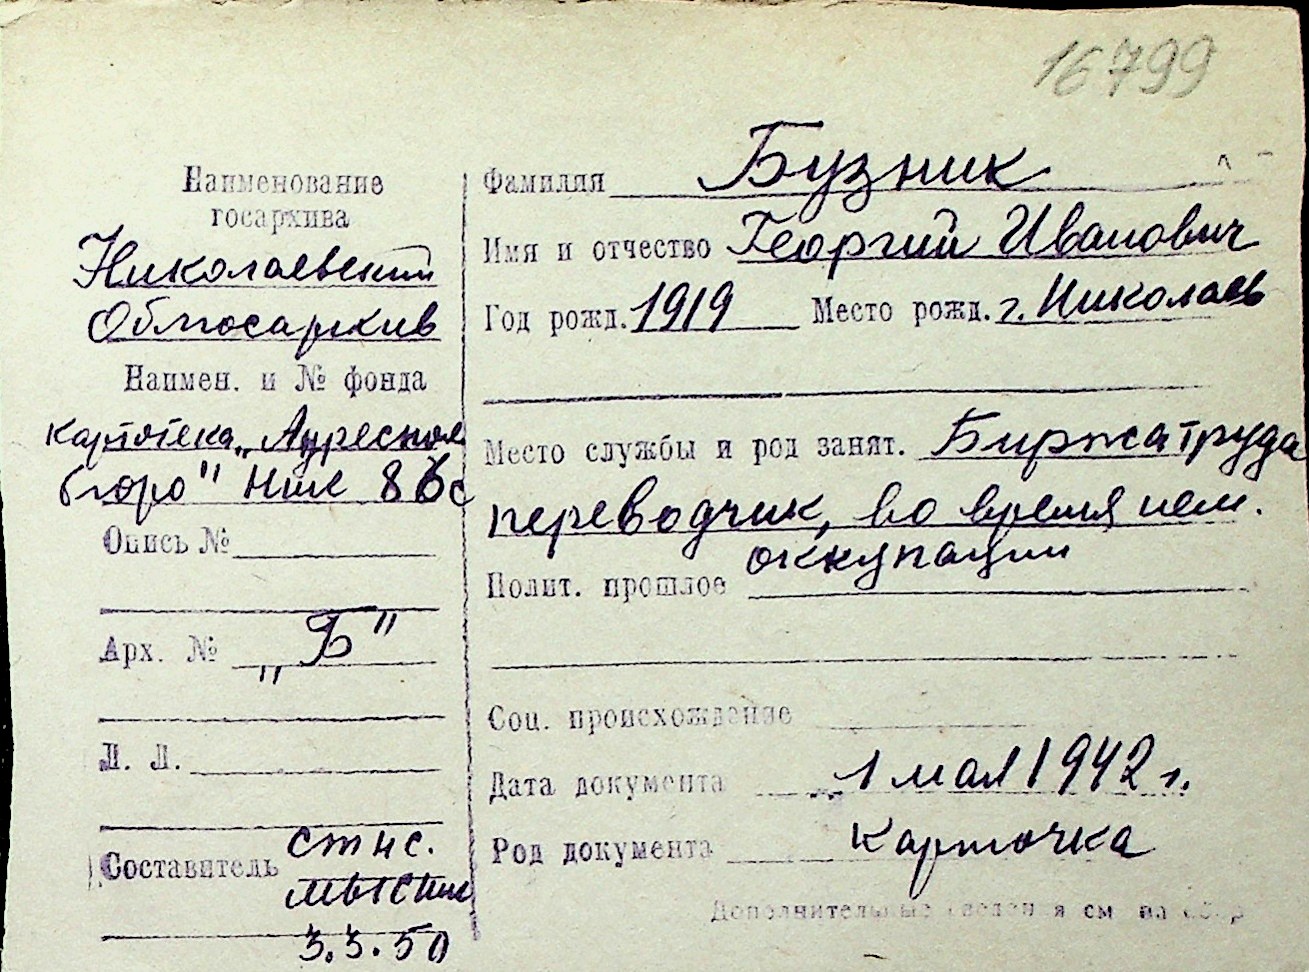 16799
Наименование
госархива
Николаевский
Облгосархив
Наимен. и № фонда
картотека „Адресное
бюро"
Опись №
Арх. № „Б"
Л. Л.
Составитель ст нс.
3.3.50
Фамилия Бузник
Имя и отчество Георгий Иванович
Год рожд. 1919 Место рожд. г. Николаев
Место службы и род занят. Биржа труда
переводчик, во время нем.
оккупации
Полит. прошлое
Соц. происхождение
Дата документа 1 мая 1942 г.
Род документа карточка
Дополнительные сведения см на обор